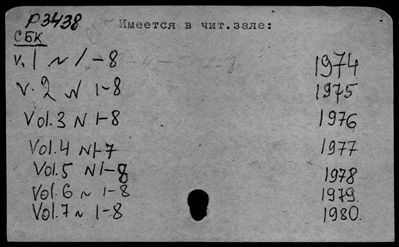 P3438
Имеется в чит.зале:
СБК
V. 1 N 1-8 1974
V. 2 N 1-8 1975
Vol. 3 N 1-8 1976
Vol. 4 N 1-7 1977
Vol. 5 N 1-8 1978
Vol. 6 N 1-8 1979.
Vol. 7 N 1-8 1980.